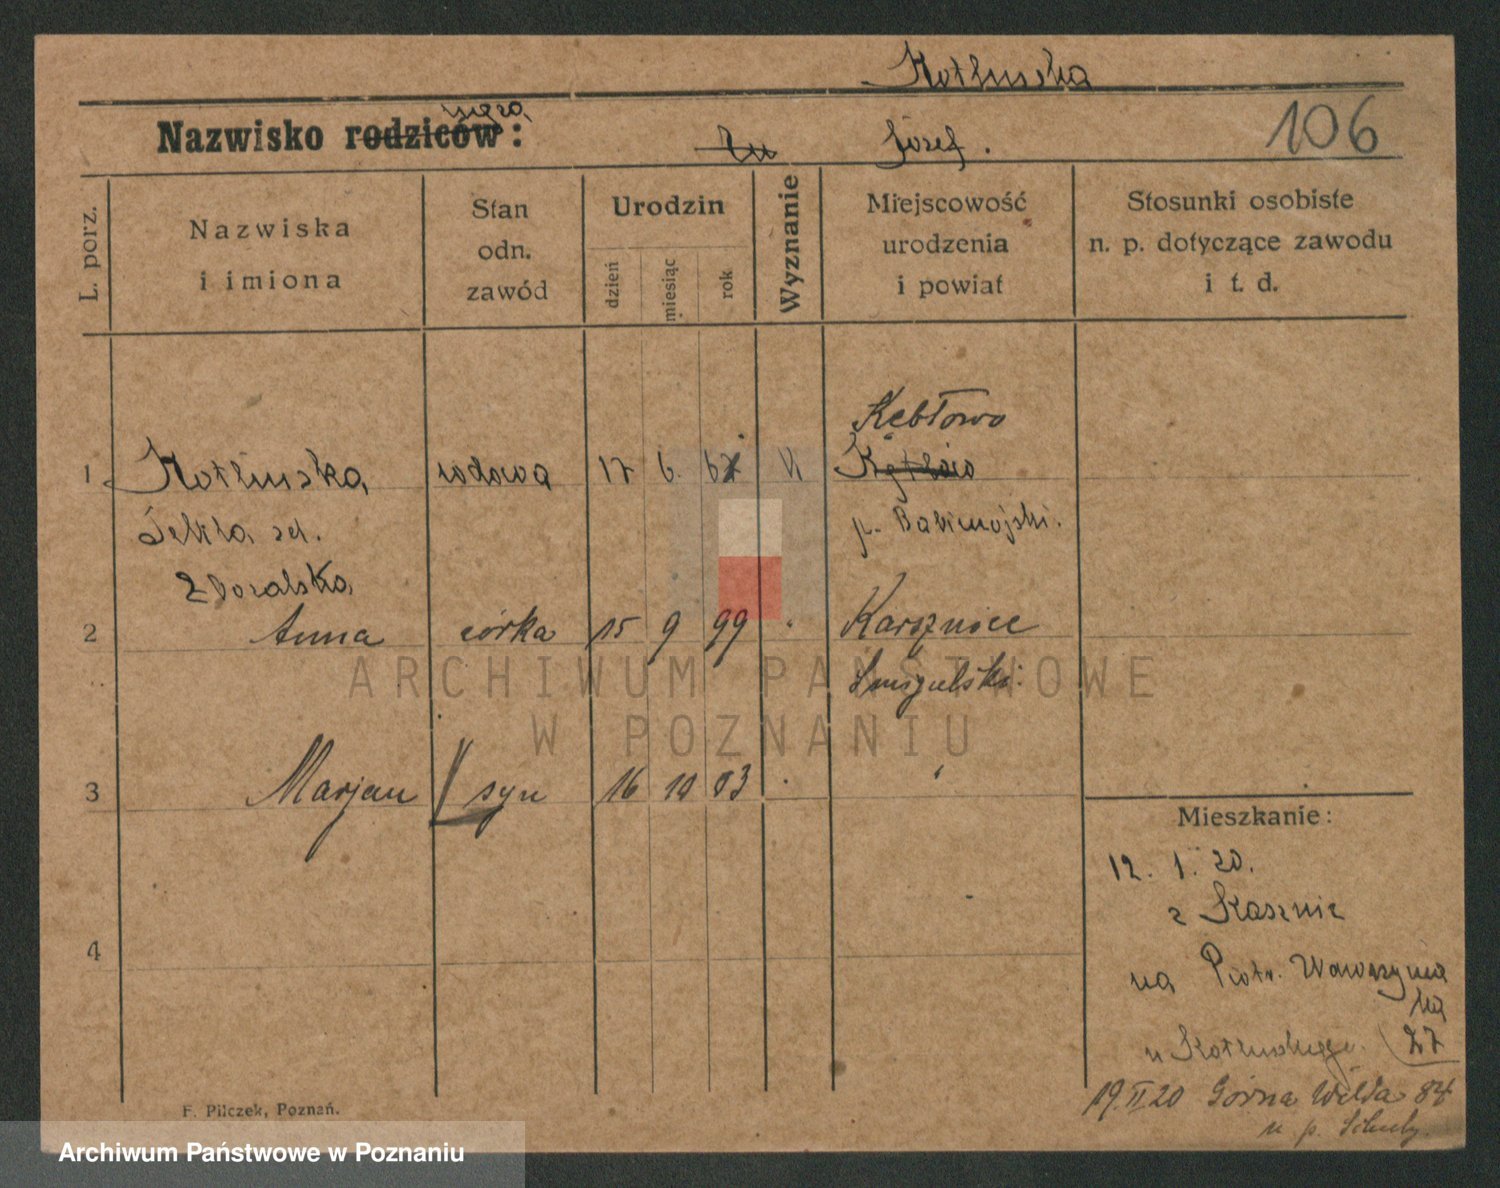 Kotlińska
Nazwisko rodziców:
Józef.
106
L. porz.
Nazwiska
i imiona
Stan
odn.
zawód
Urodzin
dzień
miesiąc
rok
Wyznanie
Miejscowość
urodzenia
i powiat
Stosunki osobiste
n. p. dotyczące zawodu
i t. d.
Kębłowo
1 Kotlińska wdowa 17 6. K
p. Babimojski.
2 Anna córka 15 9 99
Śmigielski
ARCHIWUM PAŃSTWOWE
W POZNANIU
3 Marjan syn 16 10 03
Mieszkanie:
12. 1. 20.
z
na Piotr. Wawrzynia
ka
27
u Kotlińskiego.
4
19.II 20 Górna Wilda 84
u p.
F. Pilczek, Poznań.
Archiwum Państwowe w Poznaniu